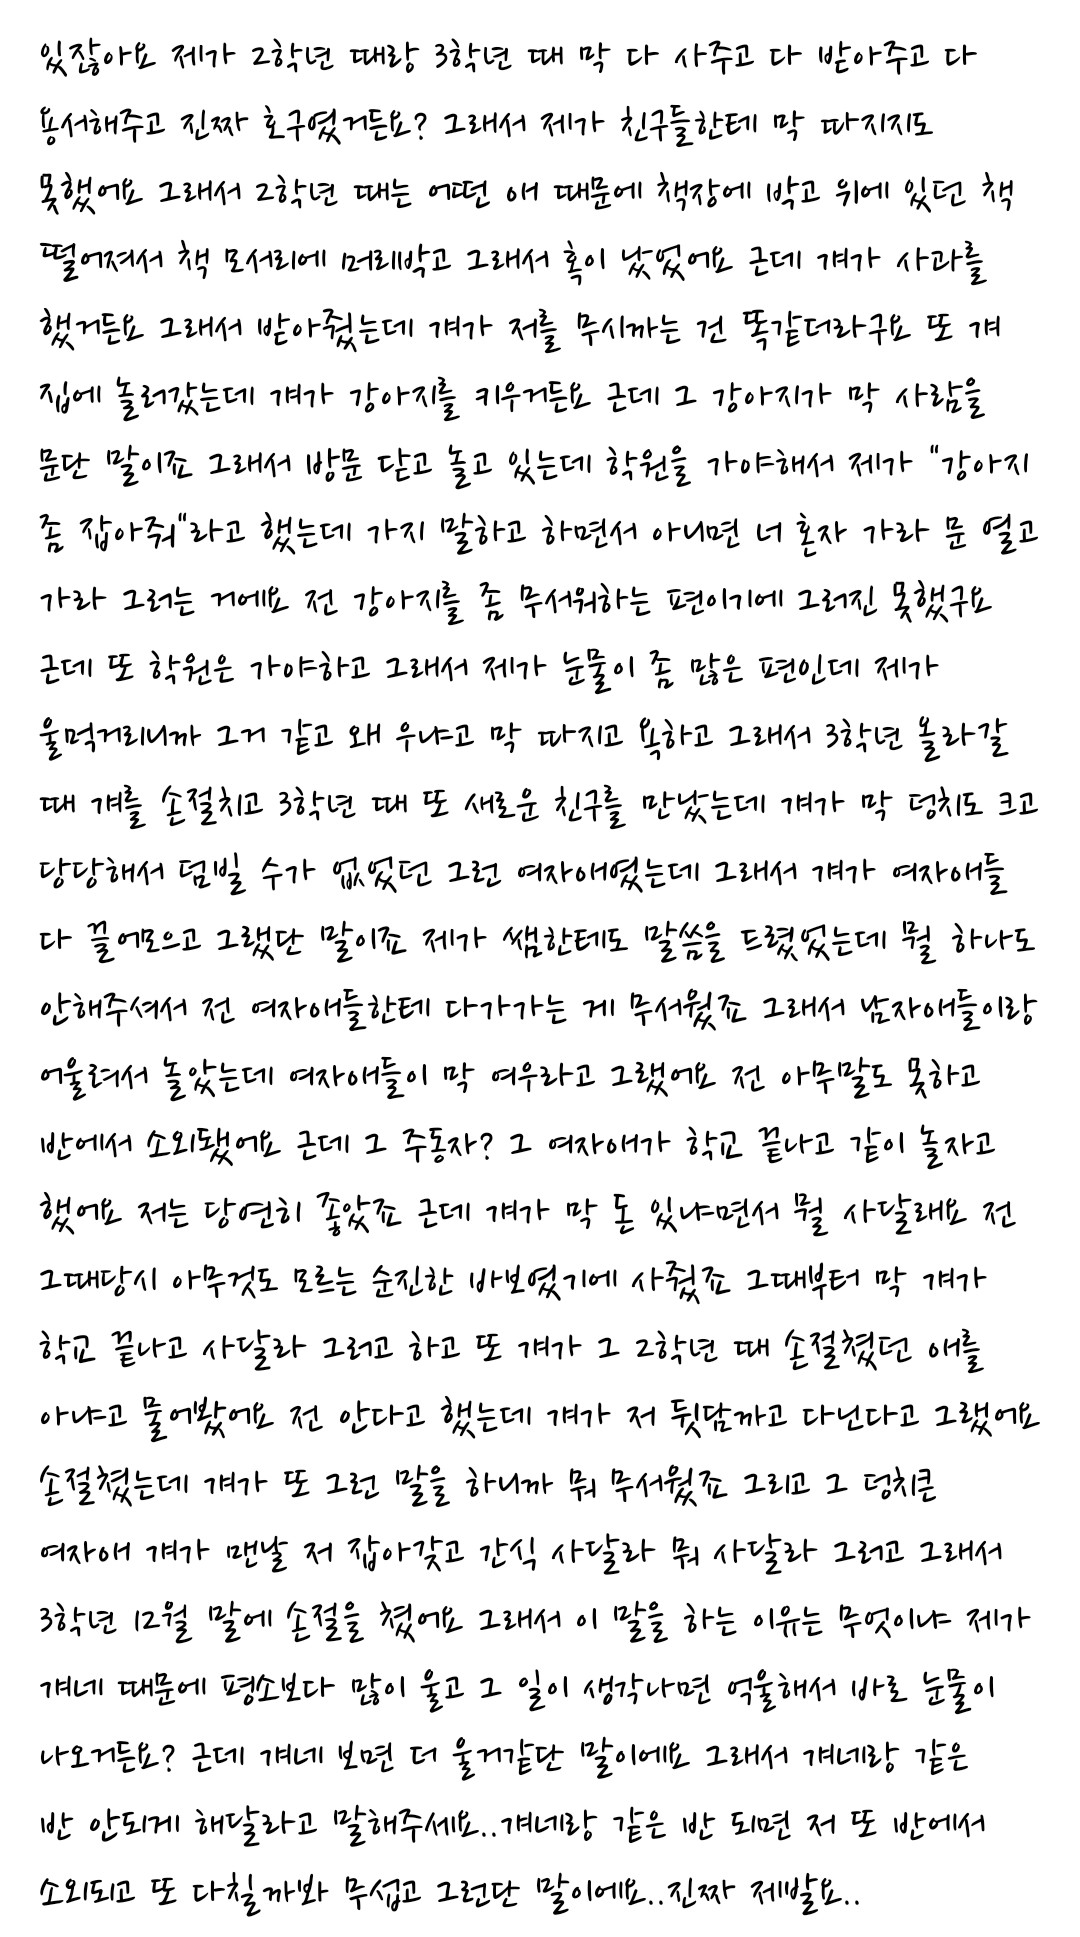 있잖아요 제가 2학년 때랑 3학년 때 막 다 사주고 다 받아주고 다
용서해주고 진짜 호구였거든요? 그래서 제가 친구들한테 막 따지지도
못했어요 그래서 2학년 때는 어떤 애 때문에 책장에 박고 위에 있던 책
떨어져서 책 모서리에 머리박고 그래서 혹이 났었어요 근데 걔가 사과를
했거든요 그래서 받아줬는데 걔가 저를 무시까는 건 똑같더라구요 또 걔
집에 놀러갔는데 걔가 강아지를 키우거든요 근데 그 강아지가 막 사람을
문단 말이죠 그래서 방문 닫고 놀고 있는데 학원을 가야해서 제가 "강아지
좀 잡아줘"라고 했는데 가지 말하고 하면서 아니면 너 혼자 가라 문 열고
가라 그러는 거에요 전 강아지를 좀 무서워하는 편이기에 그러진 못했구요
근데 또 학원은 가야하고 그래서 제가 눈물이 좀 많은 편인데 제가
울먹거리니까 그거 같고 왜 우냐고 막 따지고 욕하고 그래서 3학년 올라갈
때 걔를 손절치고 3학년 때 또 새로운 친구를 만났는데 걔가 막 덩치도 크고
당당해서 덤빌 수가 없었던 그런 여자애였는데 그래서 걔가 여자애들
다 끌어모으고 그랬단 말이죠 제가 쌤한테도 말씀을 드렸었는데 뭘 하나도
안해주셔서 전 여자애들한테 다가가는 게 무서웠죠 그래서 남자애들이랑
어울려서 놀았는데 여자애들이 막 여우라고 그랬어요 전 아무말도 못하고
반에서 소외됐어요 근데 그 주동자? 그 여자애가 학교 끝나고 같이 놀자고
했어요 저는 당연히 좋았죠 근데 걔가 막 돈 있냐면서 뭘 사달래요 전
그때당시 아무것도 모르는 순진한 바보였기에 사줬죠 그때부터 막 걔가
학교 끝나고 사달라 그러고 하고 또 걔가 그 2학년 때 손절쳤던 애를
아냐고 물어봤어요 전 안다고 했는데 걔가 저 뒷담까고 다닌다고 그랬어요
손절쳤는데 걔가 또 그런 말을 하니까 뭐 무서웠죠 그리고 그 덩치큰
여자애 걔가 맨날 저 잡아갖고 간식 사달라 뭐 사달라 그러고 그래서
3학년 12월 말에 손절을 쳤어요 그래서 이 말을 하는 이유는 무엇이냐 제가
걔네 때문에 평소보다 많이 울고 그 일이 생각나면 억울해서 바로 눈물이
나오거든요? 근데 걔네 보면 더 울거같단 말이에요 그래서 걔네랑 같은
반 안되게 해달라고 말해주세요..걔네랑 같은 반 되면 저 또 반에서
소외되고 또 다칠까봐 무섭고 그런단 말이에요..진짜 제발요..